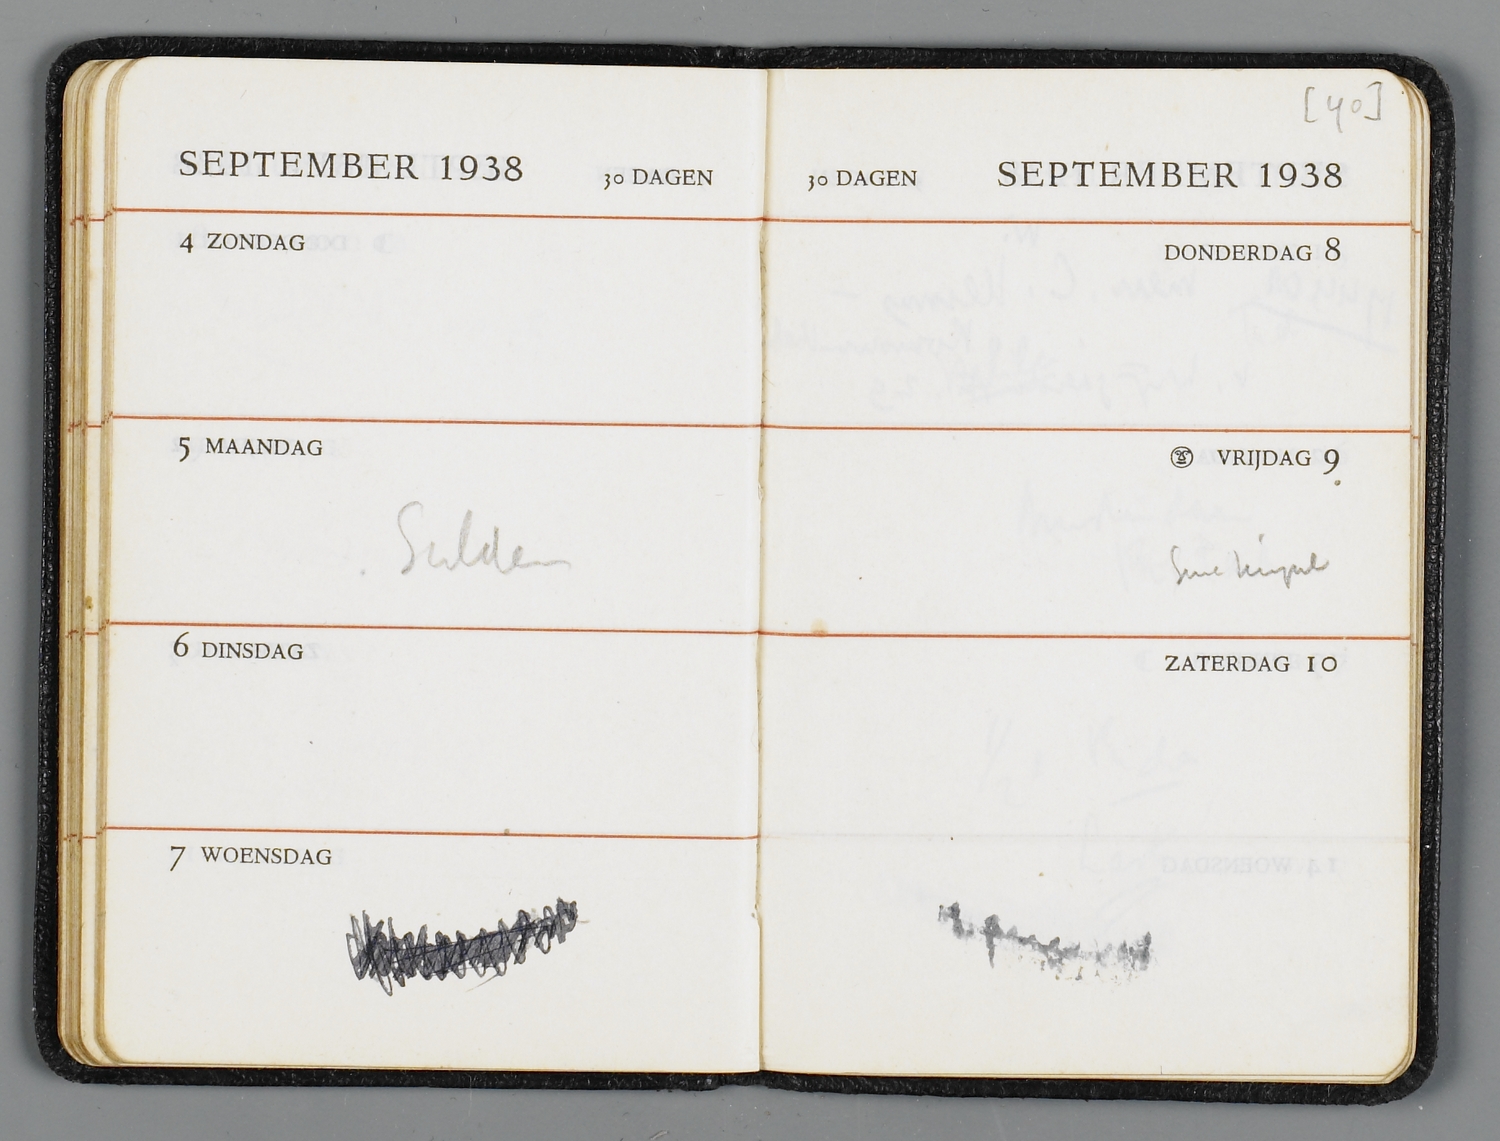 SEPTEMBER 1938 30 DAGEN
4 ZONDAG
5 MAANDAG
Sulden
6 DINSDAG
7 WOENSDAG
[40]
30 DAGEN SEPTEMBER 1938
DONDERDAG 8
VRIJDAG 9
ZATERDAG 10